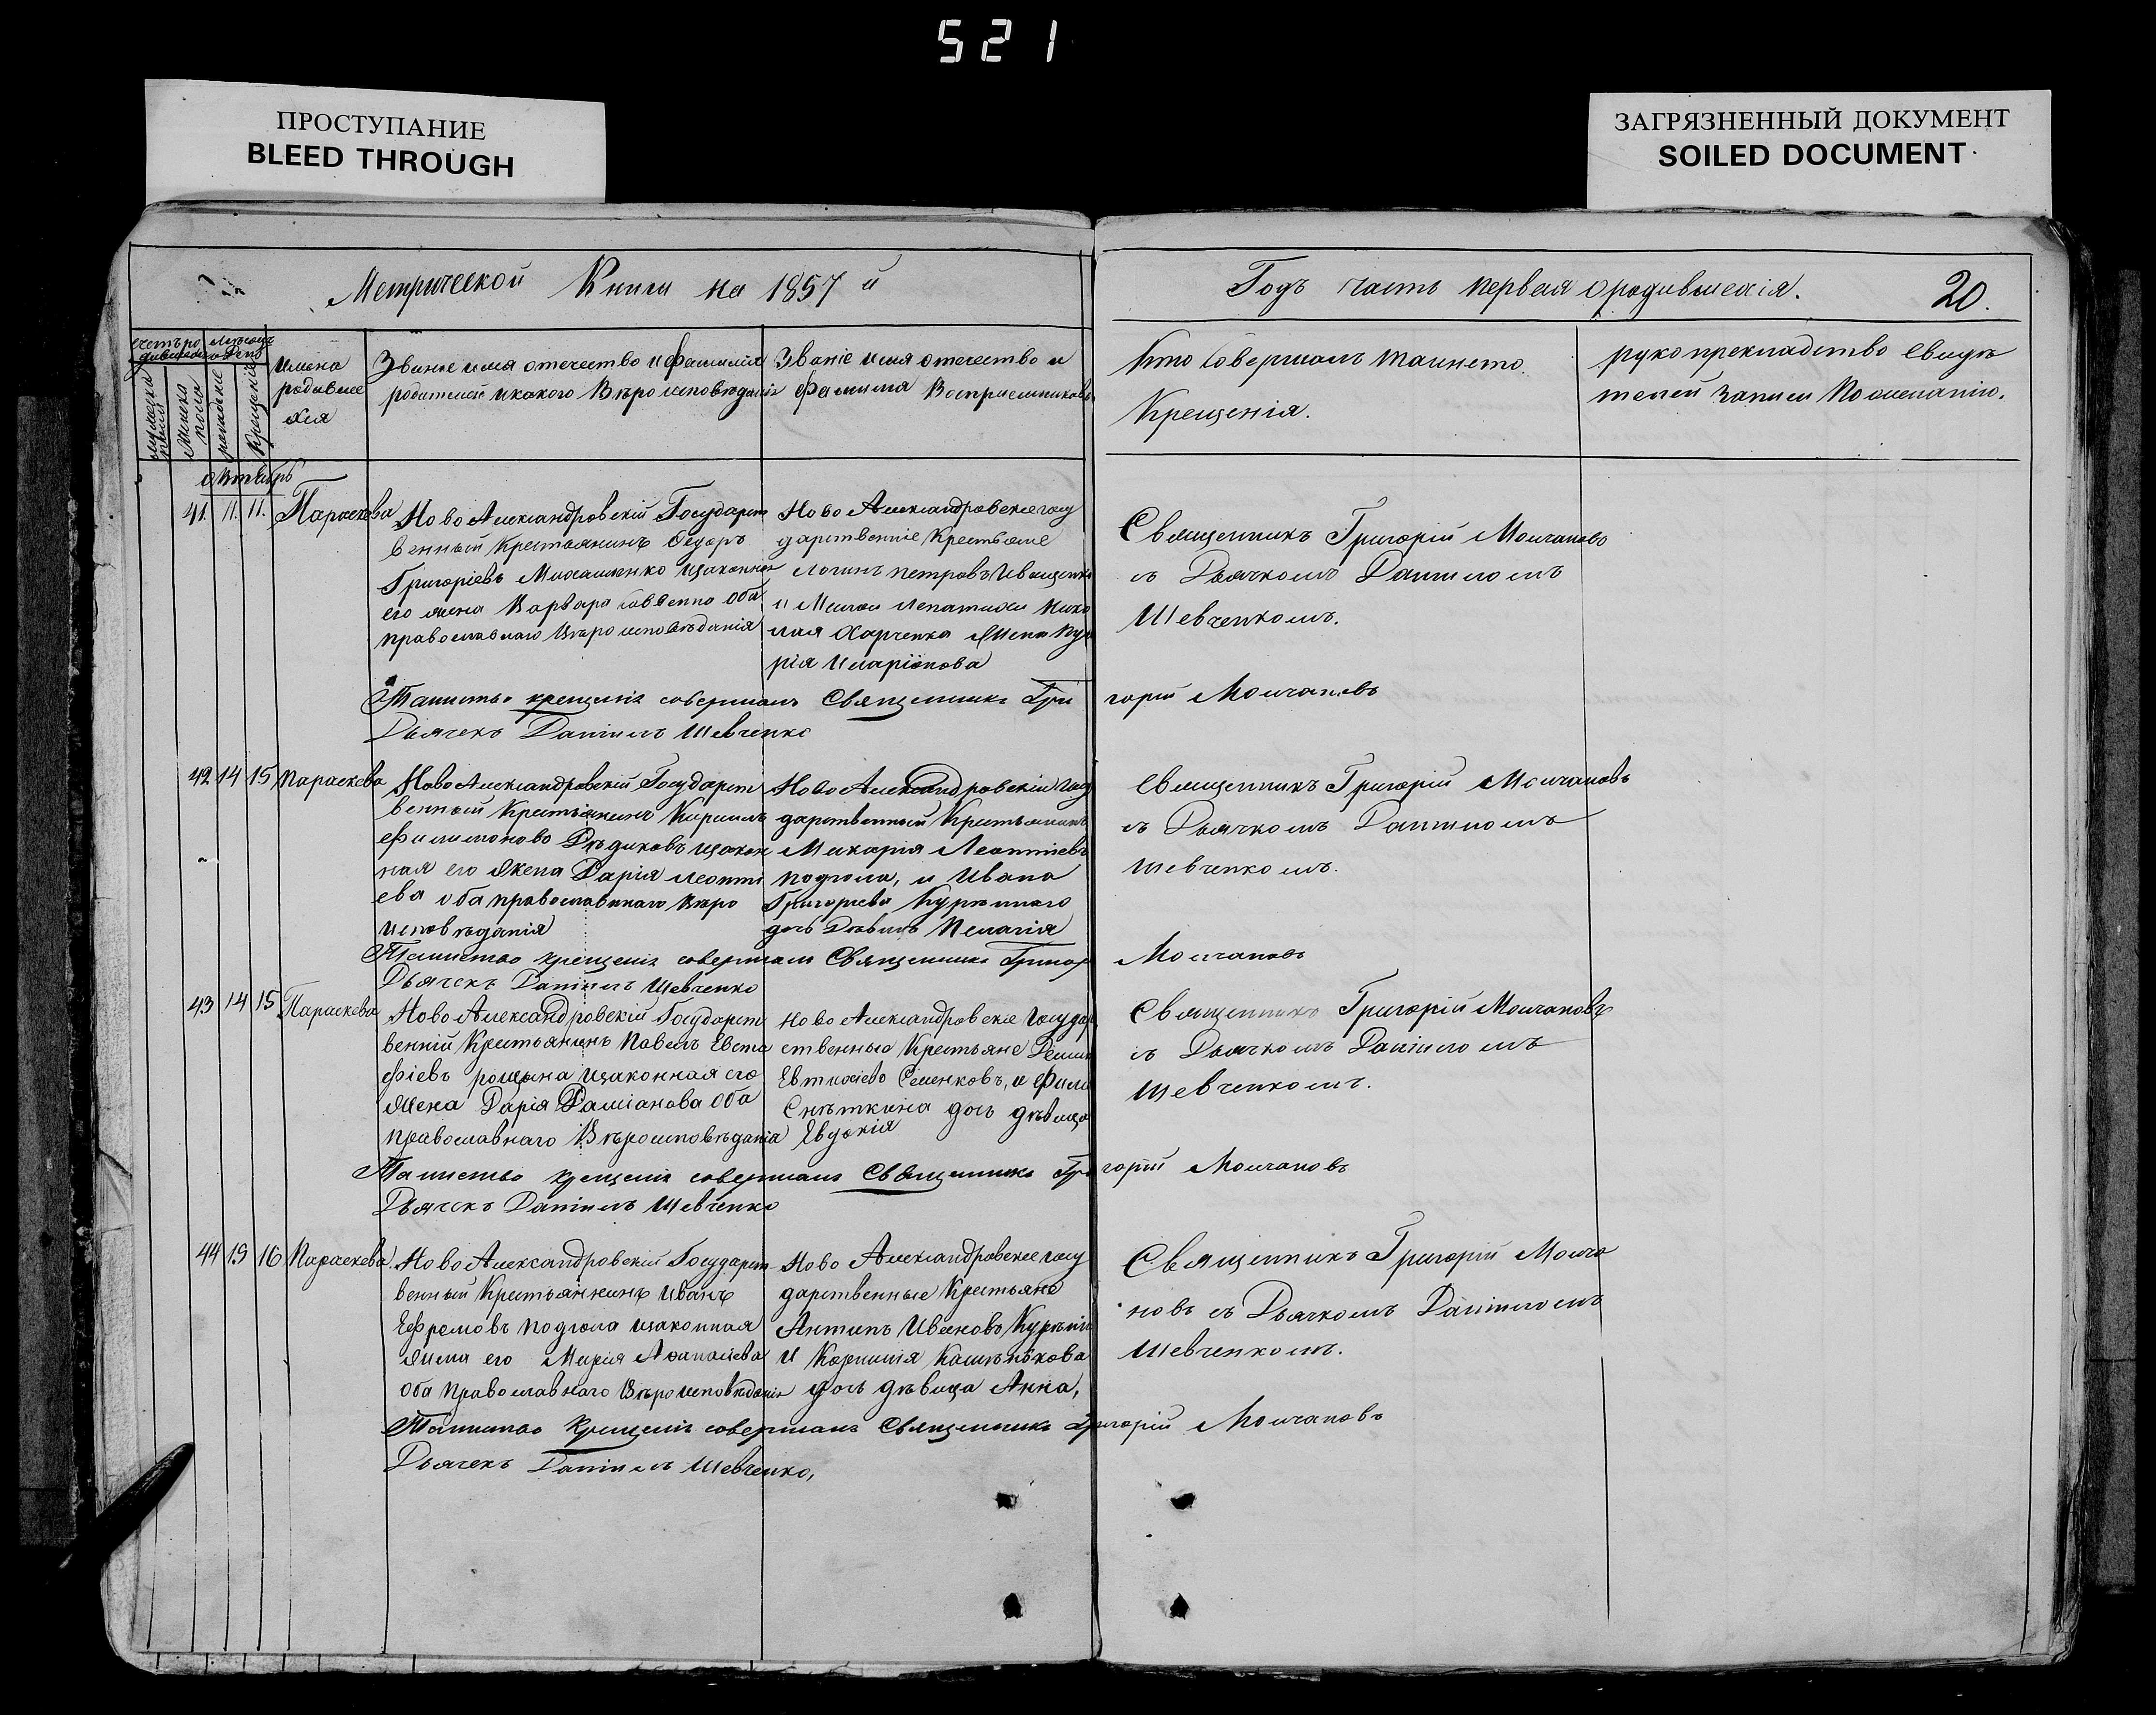 521
ПРОСТУПАНИЕ
BLEED THROUGH
ЗАГРЯЗНЕННЫЙ ДОКУМЕНТ
SOILED DOCUMENT
Метрической Книги на 1857 й
Годъ часть первая о родившихся.
20.
Имена
родивше
хся
Званіе имя отечество и фамилія
родителей и какого Вѣроисповѣданія
Званіе имя отечество и
фамилія Воспріемниковъ
Кто Совершалъ таинство
Крещенія.
рукоприкладство свидѣ
телей записи По желанію.
октябрь
41. 11. 11. Параскева
Ново Александровскій Государст
венный Крестьянинъ Федоръ
Григоріевъ Михайленко изаконная
его жена Варвара Саввенна Оба
православнаго Вѣроисповѣданія
Ново Александровскіе госу
дарственніе Крестьяне
Логинъ петровъ Иващенко
и
Харченка жена
рія Иларіонова
Священникъ Григорій Молчановъ
съ Дьячкомъ Даниломъ
Шевченкомъ.
Таинство крещенія совершалъ Священникъ Григорій Молчановъ
Дьячекъ Даніилъ Шевченко
42 14 15 Параскева
Ново Александровскій Государст
венный Крестьянинъ Кирилъ
Филимоновъ Дѣдиковъ изакон
ная его жена Дарія Леонті
ева оба православнаго Вѣро
исповѣданія
Ново Александровскій госу
дарственный Крестьянинъ
Макарія Леонтіевъ
подгола, и Ивана
Григорьева Курѣннаго
дочь Дѣвица Пелагія
Священникъ Григорій Молчановъ
съ Дьячкомъ Даниломъ
Шевченкомъ.
Таинство крещенія совершалъ Священникъ Григор Молчановъ
Дьячекъ Даніилъ Шевченко
43 14 15 Параскева
Ново Александровскій Государст
венній Крестьянинъ Павелъ Евста
фіевъ рощина изаконная его
жена Дарія Даміанова Оба
православнаго Вѣроисповѣданія
Ново Александровскіе государ
ственные Крестьяне
Евтихіевъ Семенковъ, и
Снѣткина дочь дѣвица
Евдокія
Священникъ Григорій Молчановъ
съ Дьячкомъ Даніиломъ
Шевченкомъ.
Таинство крещенія совершалъ Священникъ Григорій Молчановъ
Дьячекъ Даніилъ Шевченко
44 15 16 Параскева
Ново Александровскій Государст
венный Крестьянинъ Иванъ
Ефремовъ подгола изаконная
жена его Марія Афанасіева
Оба православнаго Вѣроисповѣданія
Ново Александровскіе госу
дарственные Крестьяне
Антипъ Ивановъ Курѣній
и Корнилія
дочь дѣвица Анна,
Священникъ Григорій Молча
новъ съ Дьячкомъ Даніиломъ
Шевченкомъ.
Таинство Крещенія совершалъ Священникъ Григорій Молчановъ
Дьячекъ Даніилъ Шевченко,